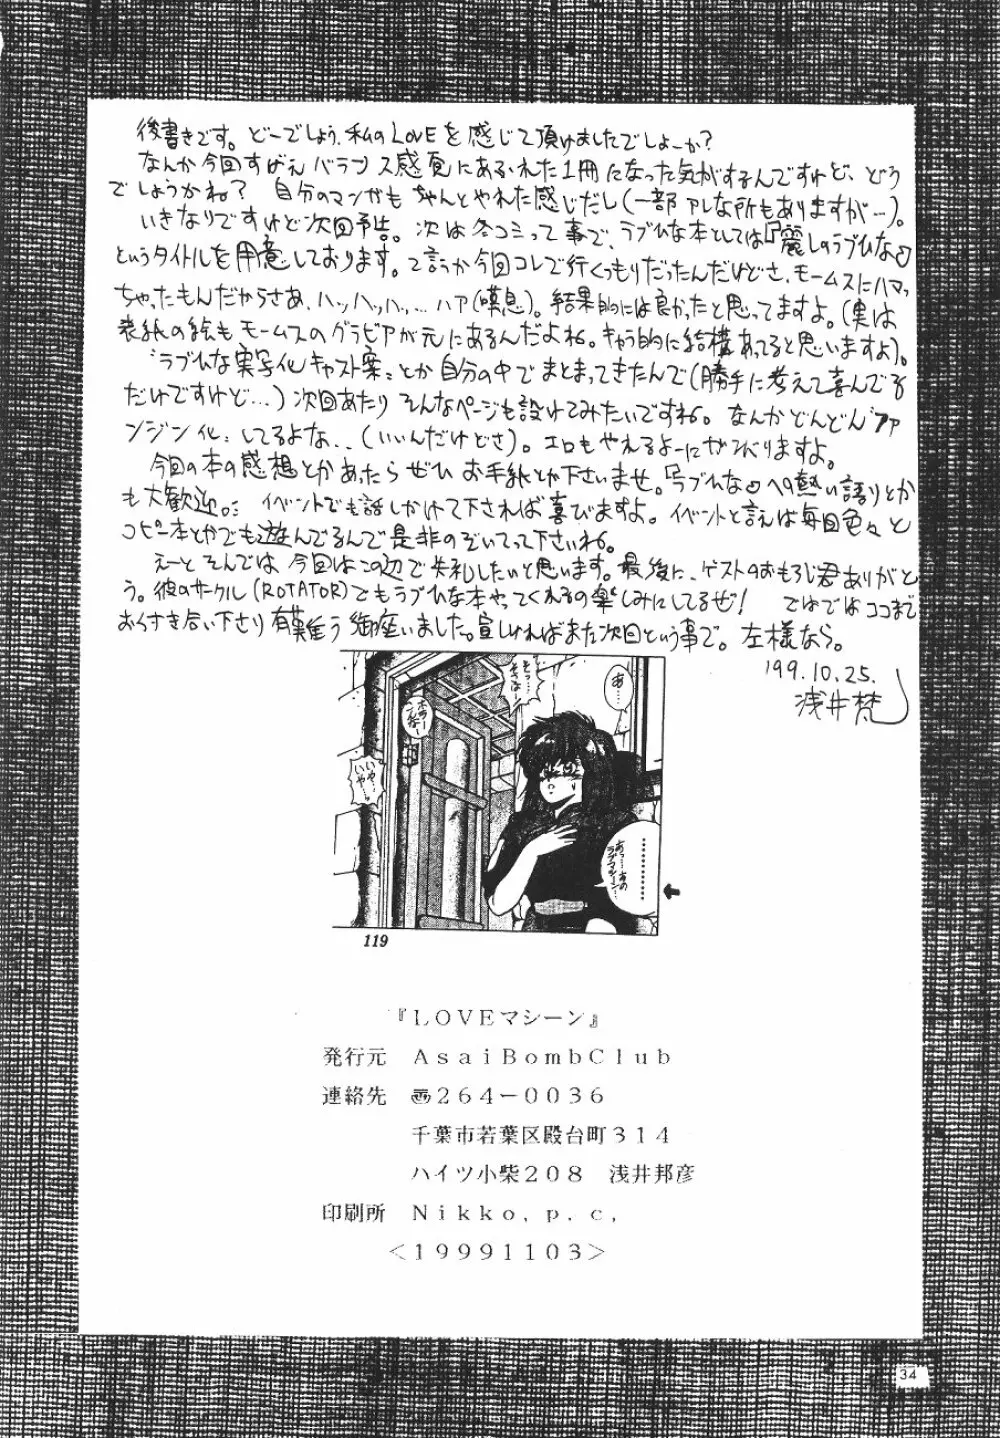 後書きです。どーでしょう、私のLOVEを感じて頂けましたでしょーか?
なんか今回すげえバランス感覚にあふれた1冊になった気がするんですけど、どう
でしょうかね? 自分のマンガもちゃんとやれた感じだし(一部アレな所もありますが…)。
いきなりですけど次回予告。次は冬コミって事で、ラブひな本としては『麗しのラブひな♡』
というタイトルを用意しております。て言うか今回コレで行くつもりだったんだけどさ、モームスにハマっ
ちゃったもんだからさあ、ハッハッハッ…ハァ(嘆息)。結果的には良かったと思ってますよ。(実は
表紙の絵もモームスのグラビアが元にあるんだよね。キャラ的に結構あってると思いますよ)。
“ラブひな実写化キャスト案”とか自分の中でまとまってきたんで(勝手に考えて喜んでる
だけですけど…)次回あたりそんなページも設けてみたいですね。なんかどんどん“ファ
ンジン化”してるよな…(いいんだけどさ)。エロもやれるよーにガンバりますよ。
今回の本の感想とかあったらぜひお手紙とか下さいませ。『ラブひな♡』への熱い語りとか
も大歓迎。イベントでも話しかけて下されば喜びますよ。イベントと言えば毎回色々と
コピー本とかでも遊んでるんで是非のぞいてって下さいね。
えーとそんでは今回はこの辺で失礼したいと思います。最後に、ゲストのおもろじ君ありがと
う。彼のサークル(ROTATOR)でもラブひな本やってくれるの楽しみにしてるぜ! ではではココまで
おつき合い下さり有難う御座いました。宜しければまた次回という事で。左様なら。
'99.10.25.
浅井梵
あ…
そっ…
そさな…
いや…
いや…
…………
あっ…あの
ラブマシーン…
119
『LOVEマシーン』
発行元 AsaiBombClub
連絡先 〠264-0036
千葉市若葉区殿台町314
ハイツ小柴208 浅井邦彦
印刷所 Nikko, p. c,
<19991103>
34